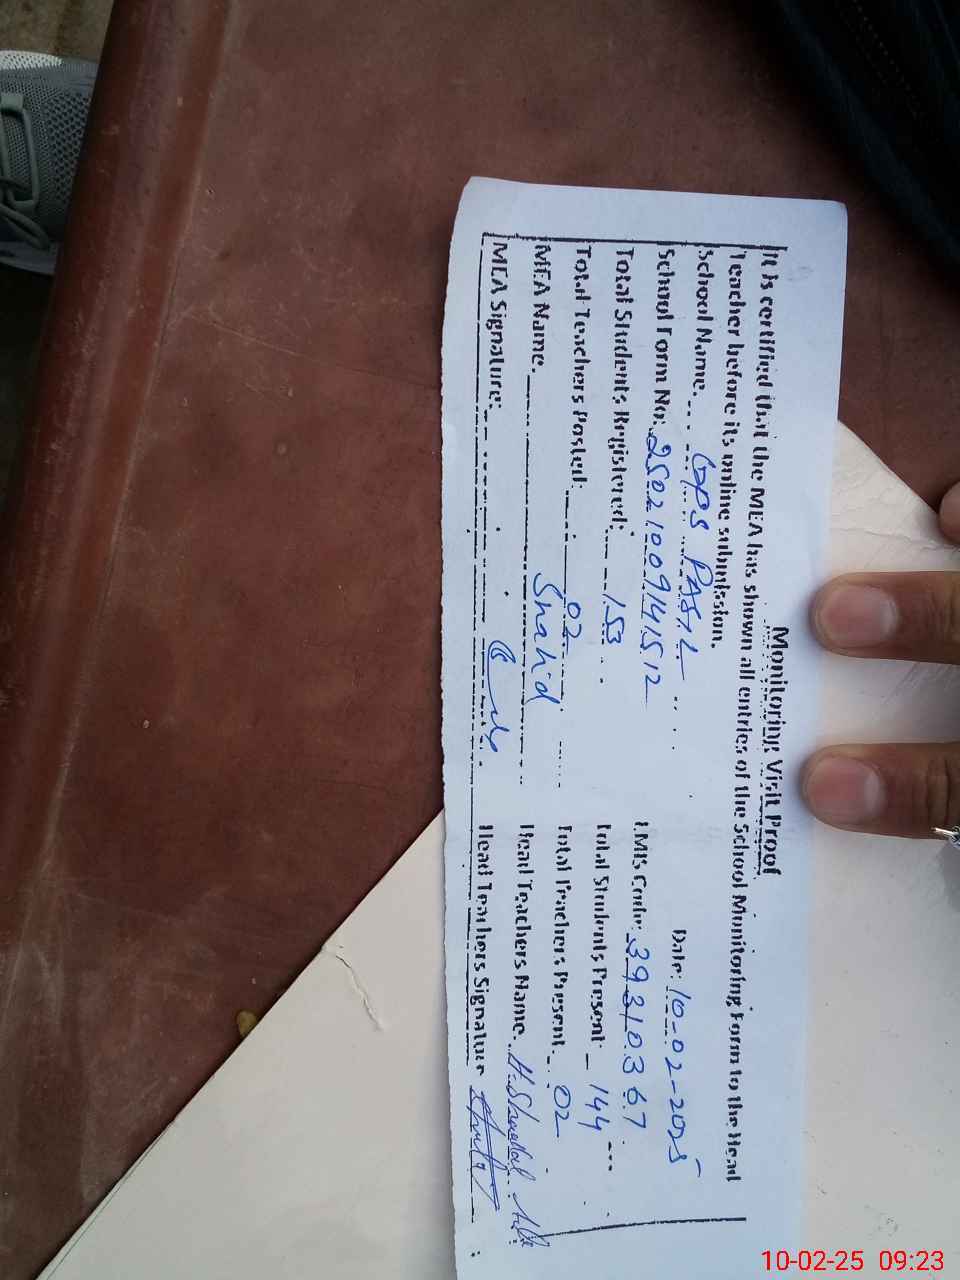 Monitoring Visit Proof
It is certified that the MEA has shown all entries of the School Monitoring Form to the Head
Teacher before its online submission.
Date: 10-02-2025
School Name. GPS PASIL
School Form No: 25021009141512 EMIS Code: 39310367
Total Students Registered: 153 Total Students Present 144
Total Teachers Posted: 02 Total Teachers Present 02
MEA Name. Shahid Head Teachers Name.
MEA Signature: Head Teachers Signature
10-02-25 09:23